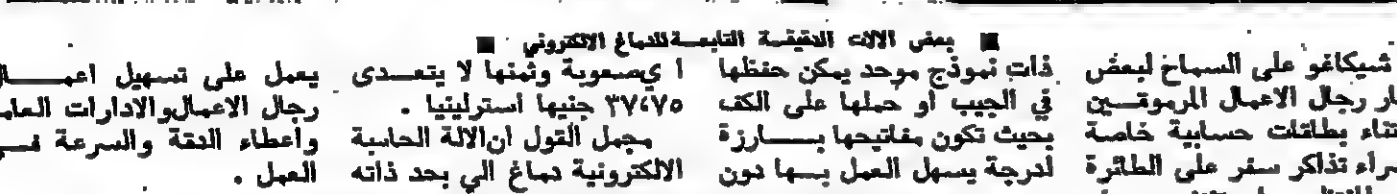 ■ بعض الالات الدقيقة التابعة للدماغ الالكتروني ■
شيكاغو على السماح لبعض
رجال الاعمال المرموقين
بطاقات حسابية خاصة
تذاكر سفر على الطائرة
ذات نموذج موحد يمكن حفظها
في الجيب او حملها على الكف
بحيث تكون مفاتيحها بارزة
لدرجة يسهل العمل بها دون
ا يصعوبة وثمنها لا يتعدى
٣٧،٧٥ جنيها استرلينيا .
مجمل القول ان الالة الحاسبة
الالكترونية دماغ الي بحد ذاته
يعمل على تسهيل اعمال
رجال الاعمال والادارات
واعطاء الدقة والسرعة في
العمل .